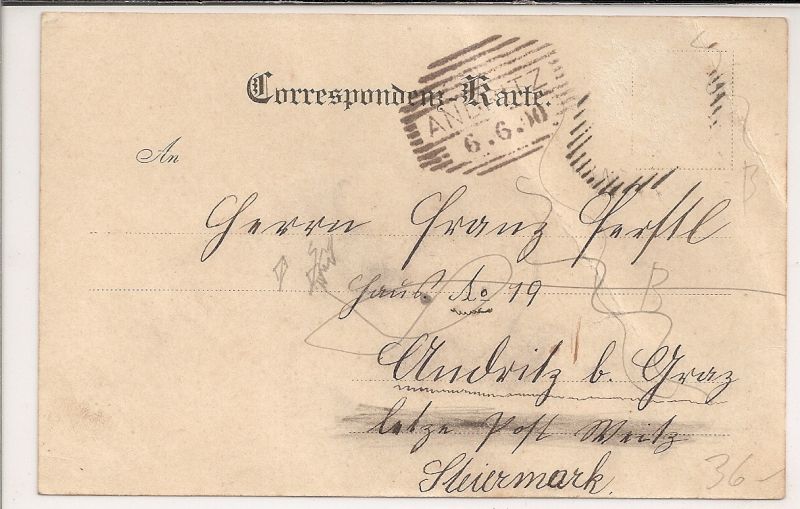 Correspondenz-Karte.
ANDRITZ
6.6.00
An
Herrn Franz Ferstl
Haus. No 19
Andritz b. Graz
letze Post Weitz
Steiermark.
36-
B
B